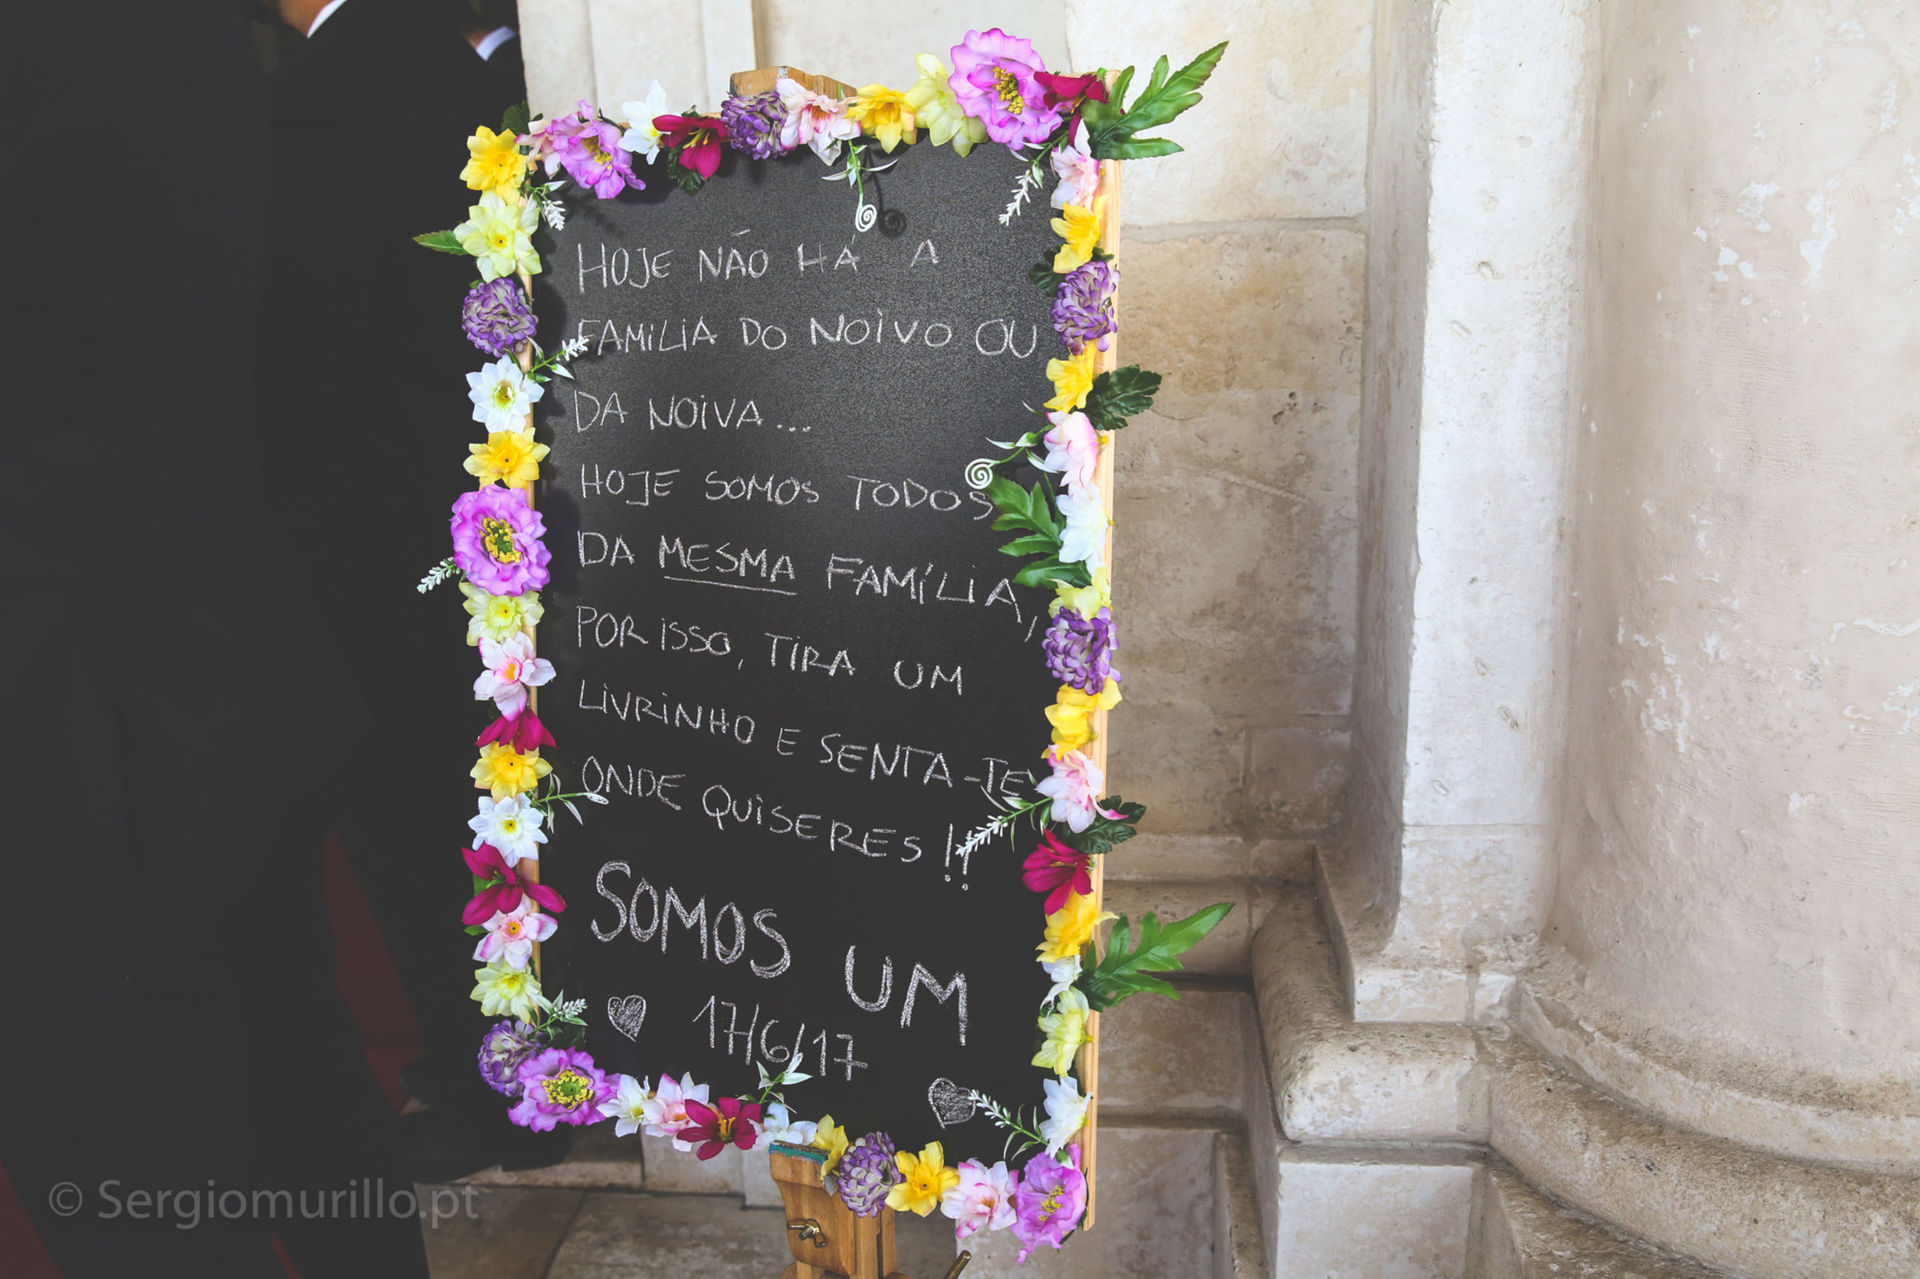 HOJE NÃO HÁ A
FAMILIA DO NOIVO OU
DA NOIVA...
HOJE SOMOS TODOS
DA MESMA FAMÍLIA,
POR ISSO, TIRA UM
LIVRINHO E SENTA-TE
ONDE QUISERES !!
SOMOS UM
17/6/17
© Sergiomurillo.pt